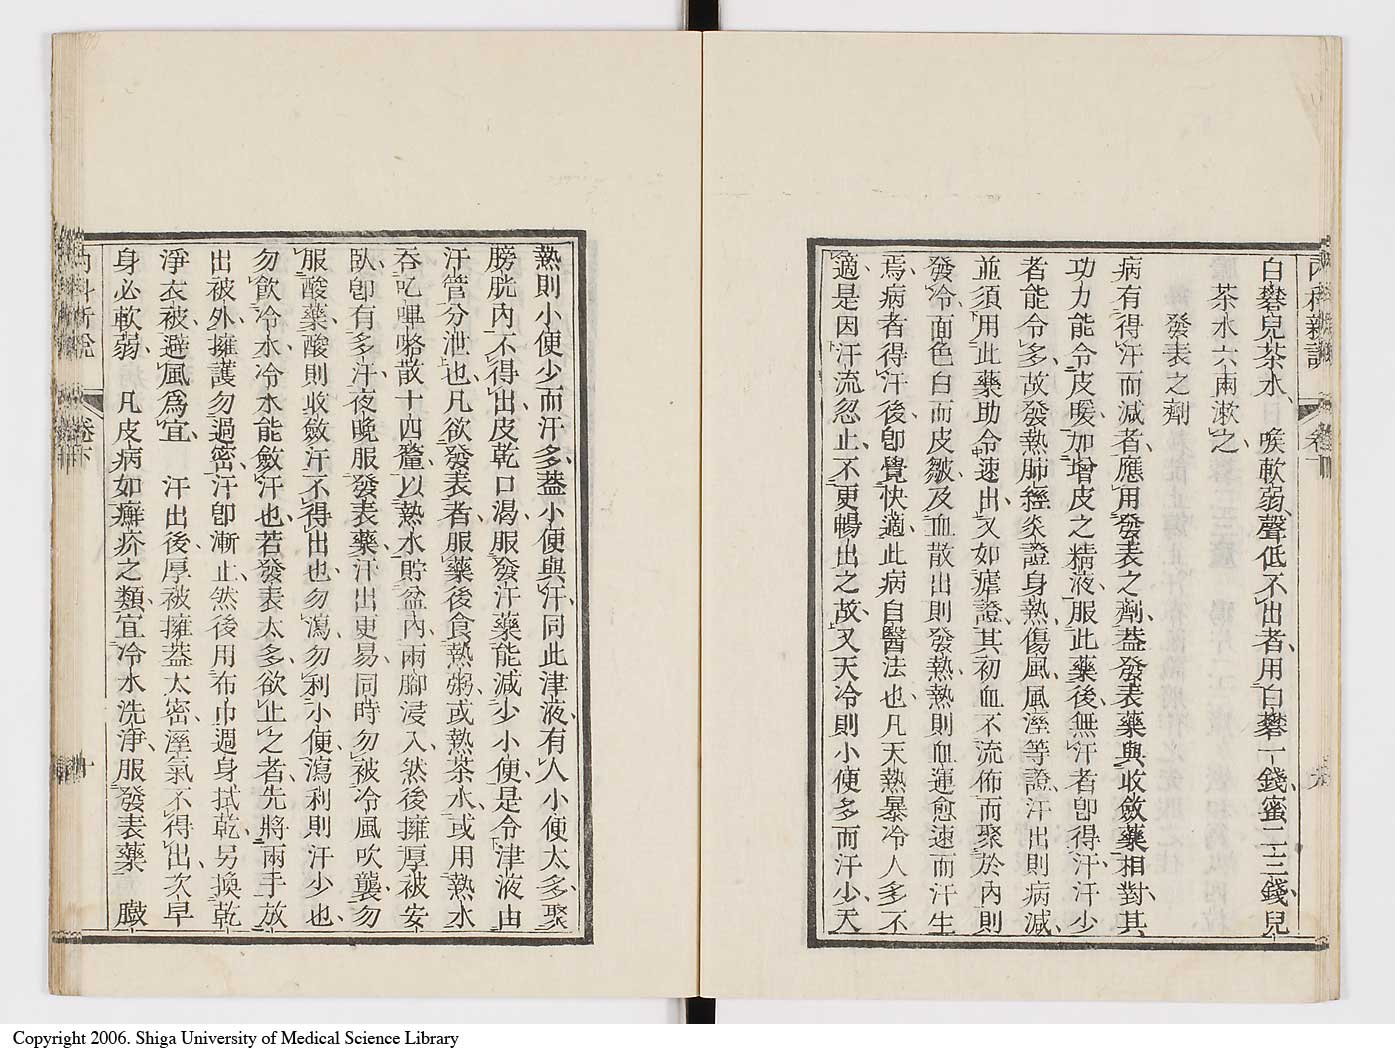 白礬兒茶水、喉軟弱、聲低不出者用白礬一錢、蜜二三錢、兒
茶水六兩漱之、
發表之劑
病有得汗而減者、應用發表之劑、葢發表藥與收斂藥相對、其
功力能令皮暖、加增皮之精液、服此藥後、無汗者卽得汗、汗少
者能令多、故發熱肺經炎證身熱、傷風、風溼等證、汗出則病減、
並須用此藥助令速出、又如瘧證、其初血不流佈而聚於內、則
發冷、面色白而皮皺、及血散出則發熱、熱則血運愈速而汗生
焉、病者得汗後、卽覺快適、此病自醫法也、凡天熱暴冷、人多不
適、是因汗流忽止、不更暢出之故、又天冷則小便多而汗少、天
熱則小便少而汗多、葢小便與汗同此津液、有人小便太多、聚
膀胱內、不得出、皮乾口渴、服發汗藥、能減少小便、是令津液由
汗管分泄也、凡欲發表者、服藥後、食熱粥、或熱茶水、或用熱水
吞吃嗶咯散十四釐、以熱水貯盆內、兩腳浸入、然後擁厚被安
臥、卽有多汗、夜晚服發表藥、汗出更易、同時勿被冷風吹襲、勿
服酸藥、酸則收斂、汗不得出也、勿瀉勿利小便、瀉利則汗少也、
勿飲冷水、冷水能斂汗也、若發表太多、欲止之者、先將兩手放
出被外、擁護勿過密、汗卽漸止、然後用布巾週身拭乾、另換乾
淨衣被、避風爲宜　汗出後、厚被擁葢太密、溼氣不得出、次早
身必軟弱、凡皮病如癬疥之類、宜冷水洗淨、服發表藥　臟
內科新說
卷下
內科新說
卷下
十
Copyright 2006. Shiga University of Medical Science Library